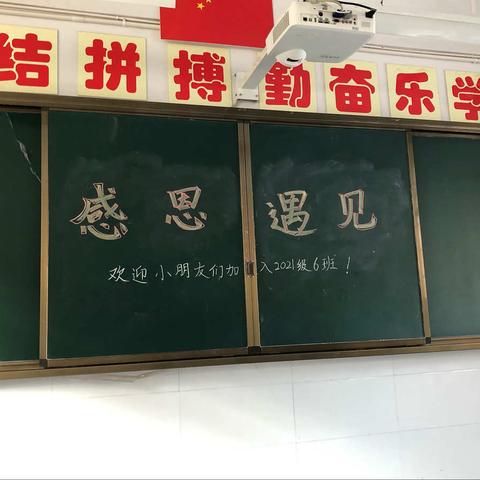 结拼搏勤奋乐学
感恩遇见
欢迎小朋友们加入2021级6班！